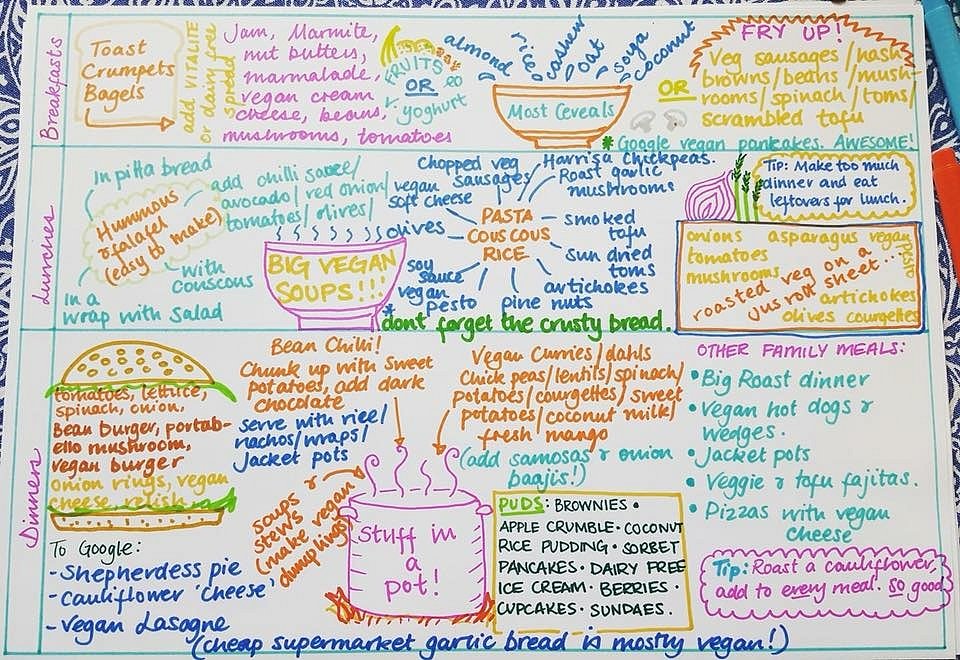 Breakfasts
Toast
Crumpets
Bagels
add VITALITE
or dairy free
spread
Jam, Marmite,
nut butters,
marmalade,
vegan cream
cheese, beans,
mushrooms, tomatoes
FRUITS
OR
yoghurt
almond
rice
cashew
oat
soya
coconut
Most Cereals
OR
FRY UP!
Veg sausages/hash
browns/beans/mush-
rooms/spinach/toms/
scrambled tofu
* Google vegan pancakes. AWESOME!
Lunches
In pitta bread
Hummous
& falafel
(easy to make)
add chilli sauce/
avocado/red onion/
tomatoes/olives/
with
couscous
In a
wrap with salad
BIG VEGAN
SOUPS!!!
* dont forget the crusty bread.
PASTA
COUSCOUS
RICE
Chopped veg
sausages
Harrisa chickpeas.
Roast garlic
mushrooms
vegan
soft cheese
olives
smoked
tofu
sun dried
toms
artichokes
pine nuts
vegan
pesto
soy
sauce
Tip: Make too much
dinner and eat
leftovers for lunch.
onions asparagus vegan
pesto
tomatoes
mushrooms
roasted veg on a
jus roll sheet...
artichokes
olives courgettes
Dinners
tomatoes, lettuce,
spinach, onion,
Bean burger, portab-
ello mushroom,
vegan burger
onion rings, vegan
cheese, relish
To Google:
- Shepherdess pie
- cauliflower 'cheese'
- vegan Lasagne
(cheap supermarket garlic bread is mostly vegan!)
Bean Chilli!
Chunk up with sweet
potatoes, add dark
chocolate
serve with rice/
nachos/wraps/
Jacket pots
soups &
stews
(make vegan
dumplings)
Stuff in
a
pot!
Vegan Curries/dahls
Chick peas/lentils/spinach/
potatoes/courgettes/sweet
potatoes/coconut milk/
fresh mango
(add samosas & onion
baajis!)
PUDS: BROWNIES •
APPLE CRUMBLE • COCONUT
RICE PUDDING • SORBET
PANCAKES • DAIRY FREE
ICE CREAM • BERRIES •
CUPCAKES • SUNDAES.
OTHER FAMILY MEALS:
• Big Roast dinner
• Vegan hot dogs &
wedges.
• Jacket pots
• Veggie & tofu fajitas.
• Pizzas with vegan
cheese
Tip: Roast a cauliflower,
add to every meal. So good